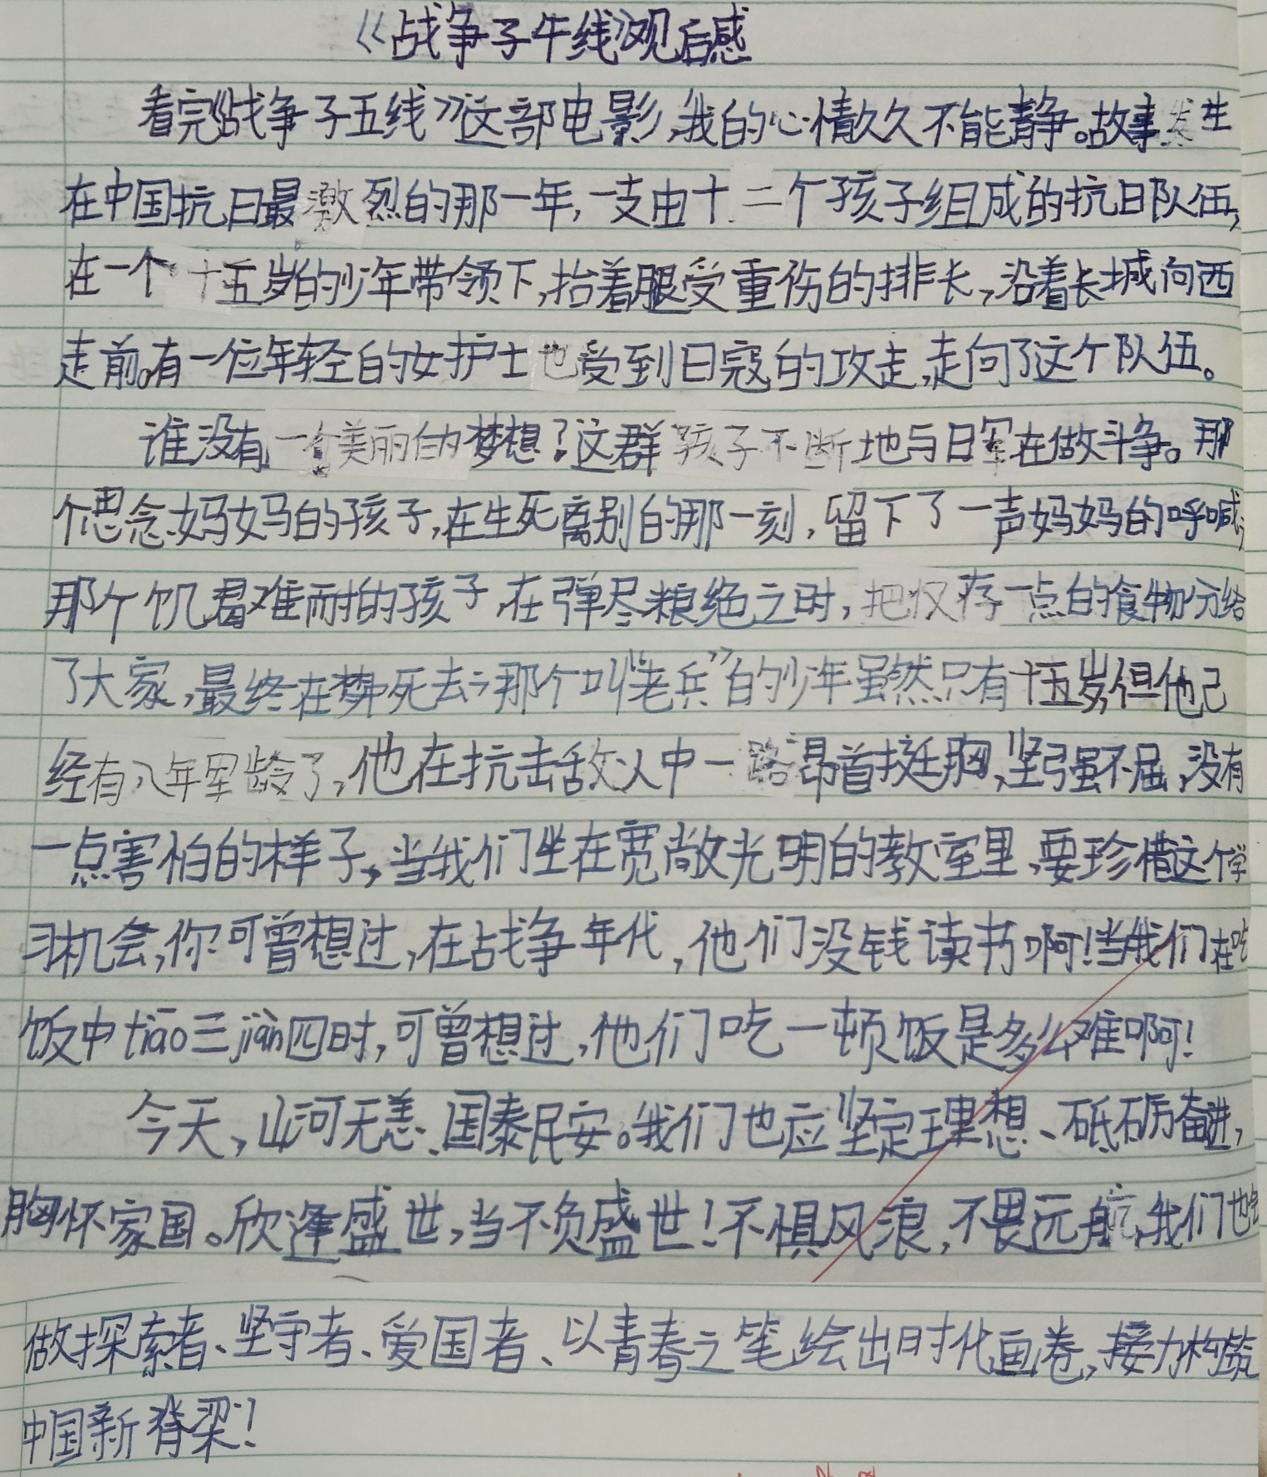 《战争子午线》观后感
看完《战争子五线》这部电影,我的心情久久不能静。故事发生
在中国抗日最激烈的那一年,一支由十二个孩子组成的抗日队伍,
在一个十五岁的少年带领下,抬着腿受重伤的排长,沿着长城向西
走前。有一位年轻的女护士也受到日寇的攻走,走向了这个队伍。
谁没有一个美丽的梦想?这群孩子不断地与日军在做斗争。那
个思念妈妈的孩子,在生死离别的那一刻,留下了一声妈妈的呼喊,
那个饥君难耐的孩子,在弹尽粮绝之时,把仅存一点的食物分给
了大家,最终在梦死去,那个叫“老兵”的少年虽然只有十五岁,但他己
经有八年军龄了,他在抗击敌人中一路昂首挺胸,坚强不屈,没有
一点害怕的样子,当我们坐在宽敞光明的教室里,要珍惜这个学
习机会,你可曾想过,在战争年代,他们没钱读书啊!当我们在吃
饭中tiāo三jiǎn四时,可曾想过,他们吃一顿饭是多么难啊!
今天,山河无恙、国泰民安。我们也应坚定理想、砥砺奋进,
胸怀家国。欣逢盛世,当不负盛世!不惧风浪,不畏远航,我们也
做探索者、坚守者、爱国者、以青春之笔绘出时代画卷,接力构筑
中国新脊梁!